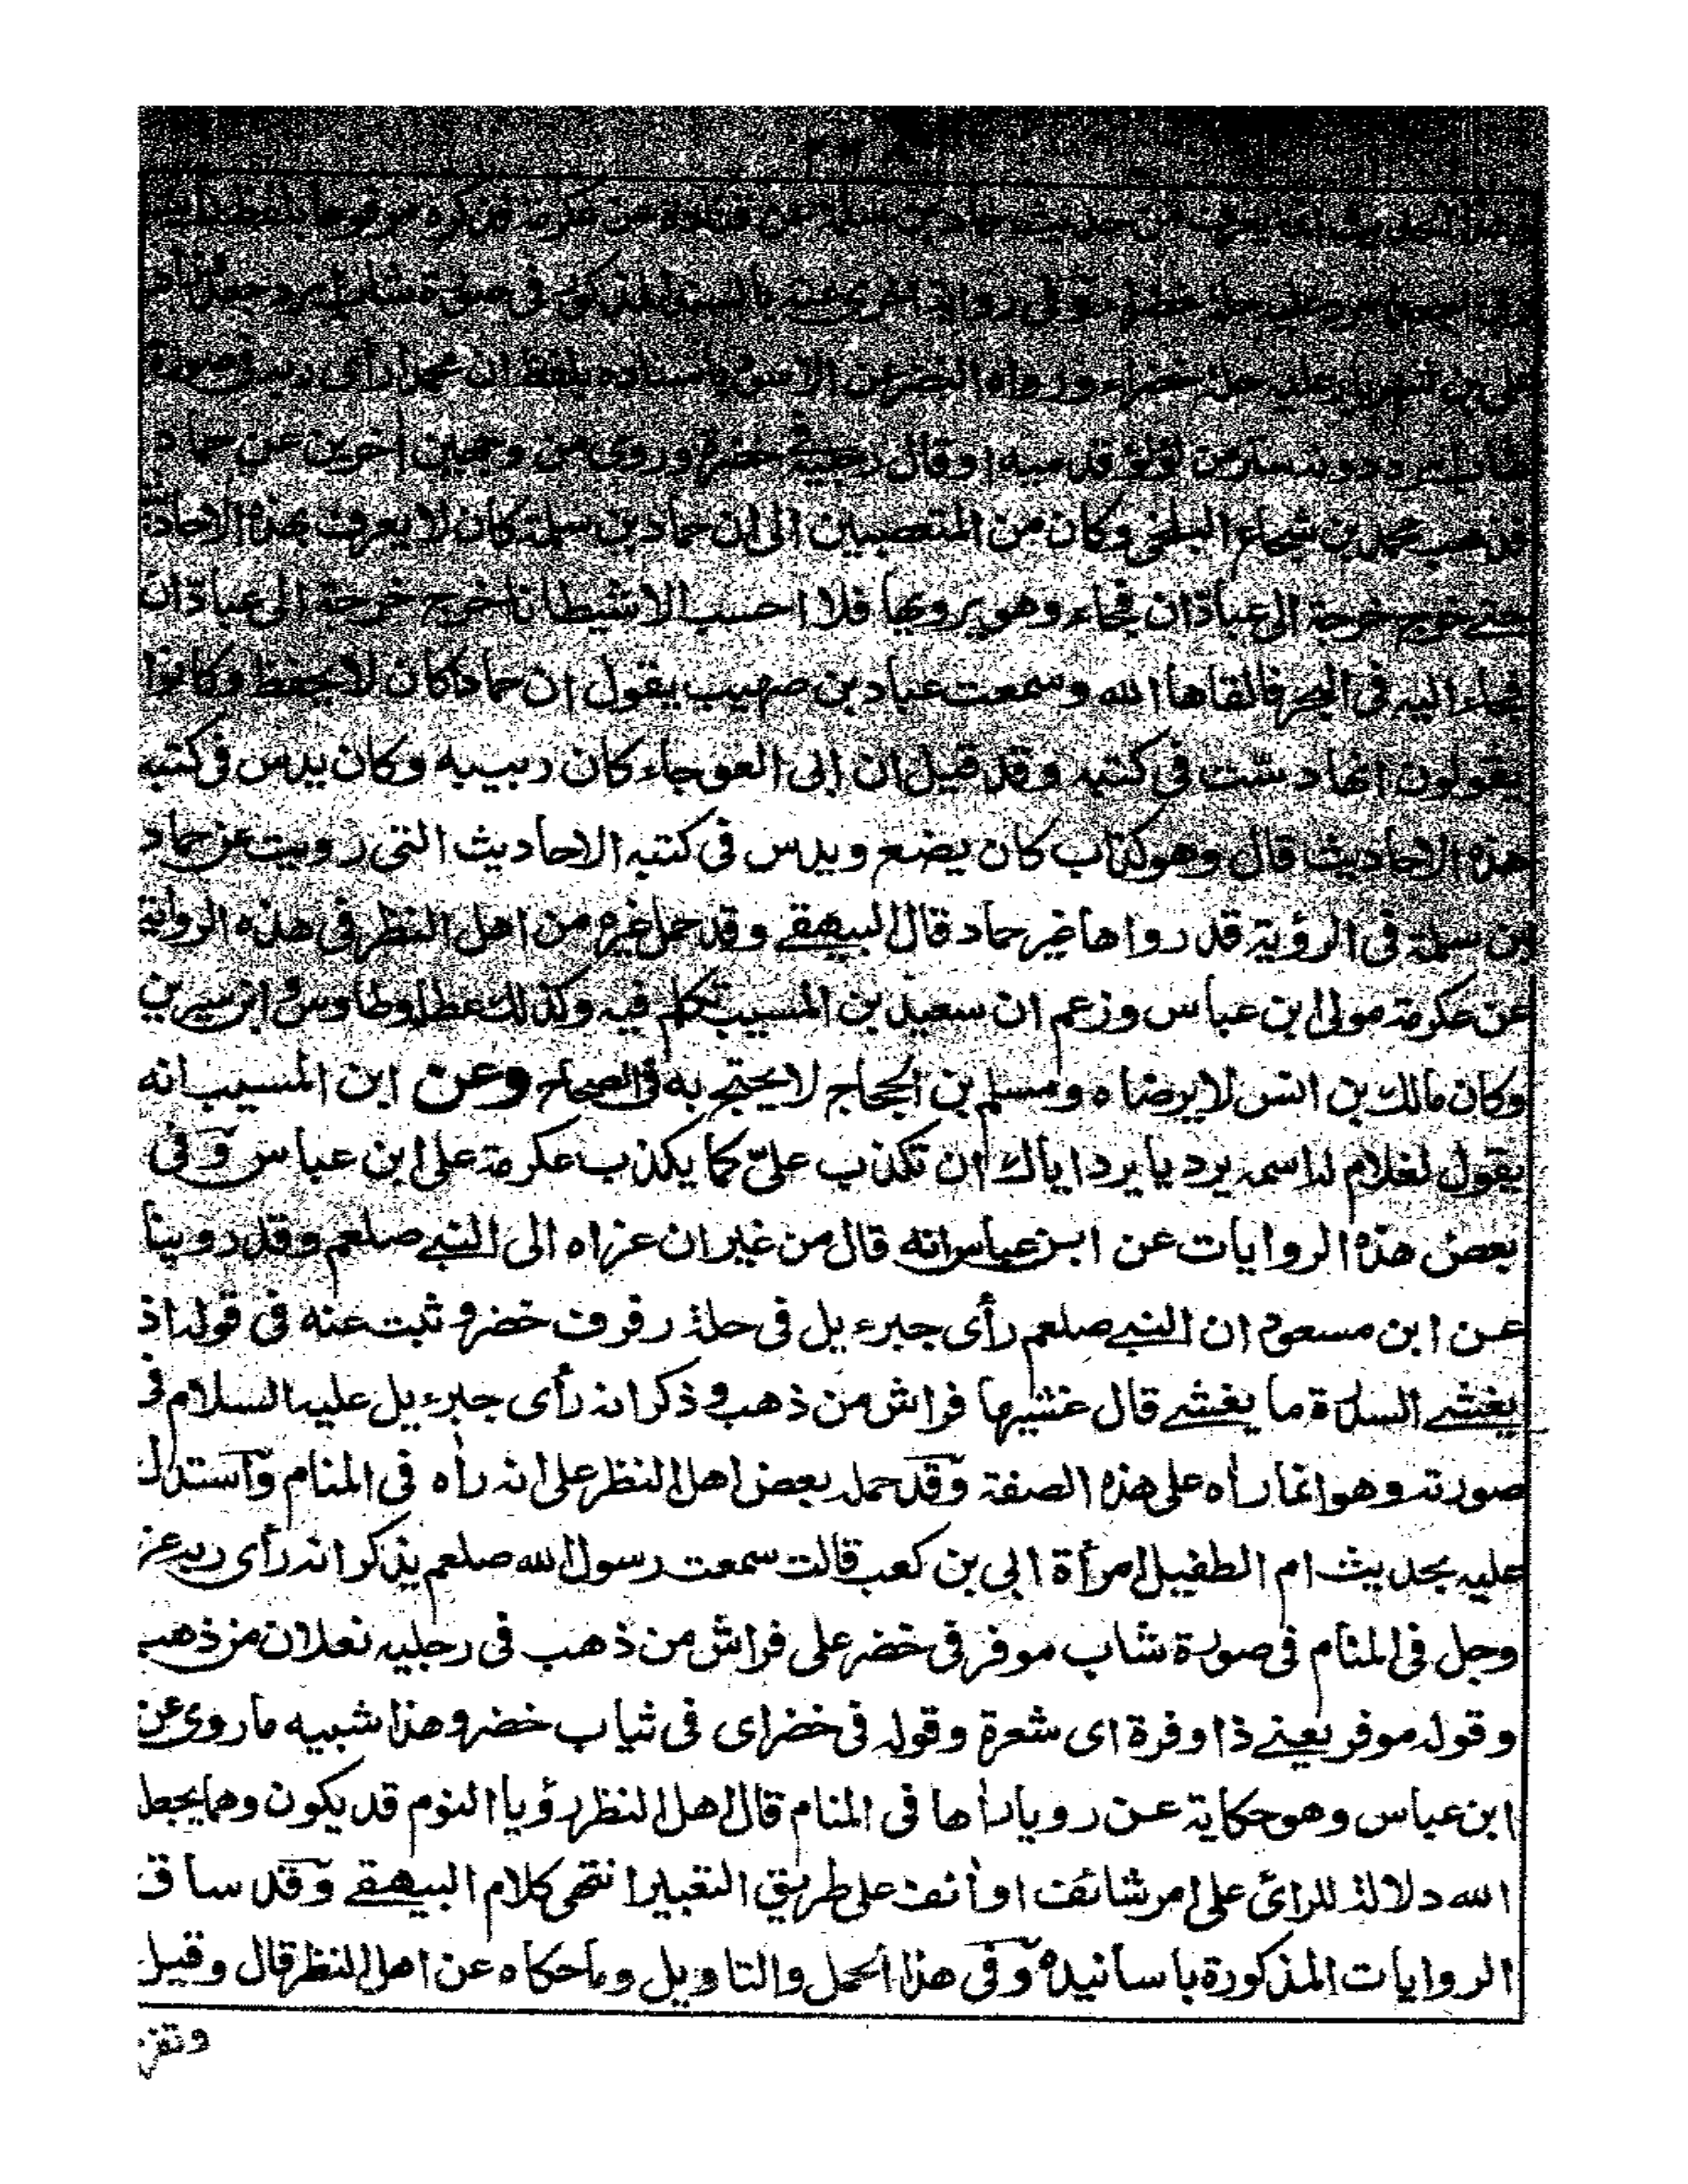 وهذا الحديث انما يعرف من حديث حماد بن سلمة عن قتادة عن عكرمة فذكره مرفوعا بلفظ
امرد عليه حلة خضراء وفى رواية اخرى عنه بالسند المذكور فى صورة شاب امرد جعد
عليه حلة خضراء ورواه النضر عن الاسود باسناده بلفظ ان محمدا رأى ربه فى صورة
شاب امرد دونه ستر من لؤلؤ قدميه او قال رجليه فى خضرة وروى من وجهين اخرين عن حماد
فذهب محمد بن شجاع البلخى وكان من المتعصبين الى ان حماد بن سلمة كان لا يعرف بهذه الاحاديث
حتے خرج خرجة الى عباذان فجاء وهو يرويها فلا احسب الا شيطانا خرج خرجة الى عباذان
فجاء اليه فى البحر فالقاها الله وسمعت عباد بن صهيب يقول ان حمادا كان لا يحفظ وكانوا
يقولون انها دسّت فى كتبه وقد قيل ان ابى العوجاء كان ربيبه وكان يدس فى كتبه
هذه الاحاديث قال وهو كتاب كان يضع ويدس فى كتبه الاحاديث التى رويت عن حماد
بن سلمة فى الرؤية قد رواها غير حماد قال البيهقے وقد حمل غيره من اهل النظر فى هذه الرواية
عن عكرمة مولى ابن عباس وزعم ان سعيد بن المسيب تكلم فيه وكذلك عطاء وطاوس وابن سيرين
وكان مالك بن انس لا يرضاه ومسلم بن الحجاج لا يحتج به فى الصحاح وعن ابن المسيب انه
يقول لغلام له اسمه برد يا برد اياك ان تكذب علىّ كما يكذب عكرمة على ابن عباس وفى
بعض هذه الروايات عن ابن عباس انه قال من غير ان عزاه الى النبے صلعم وقد روينا
عن ابن مسعود ان النبے صلعم رأى جبرءيل فى حلة رفرف خضر و ثبت عنه فى قوله اذ
يغشے السدرة ما يغشے قال غشيها فراش من ذهب وذكر انه رأى جبرءيل عليه السلام فى
صورته وهو انما رأه على هذه الصفة وقد حمله بعض اهل النظر على انه رأه فى المنام واستدل
عليه بحديث ام الطفيل امرأة ابى بن كعب قالت سمعت رسول الله صلعم يذكر انه رأى ربه عز
وجل فى المنام فى صورة شاب موفر فى خضر على فراش من ذهب فى رجليه نعلان من ذهب
وقوله موفر يعنے ذا وفرة اى شعرة وقوله فى خضر اى فى ثياب خضر وهذا شبيه ما روى عن
ابن عباس وهو حكاية عن رويا رأها فى المنام قال اهل النظر رؤيا النوم قد يكون وهما يجعل
الله دلالة للرائ على امر شائف او أنف على طريق التعبير انتهى كلام البيهقے وقد ساق
الروايات المذكورة باسانيده وفى هذا الحمل والتاويل وما حكاه عن اهل النظر قال وقيل